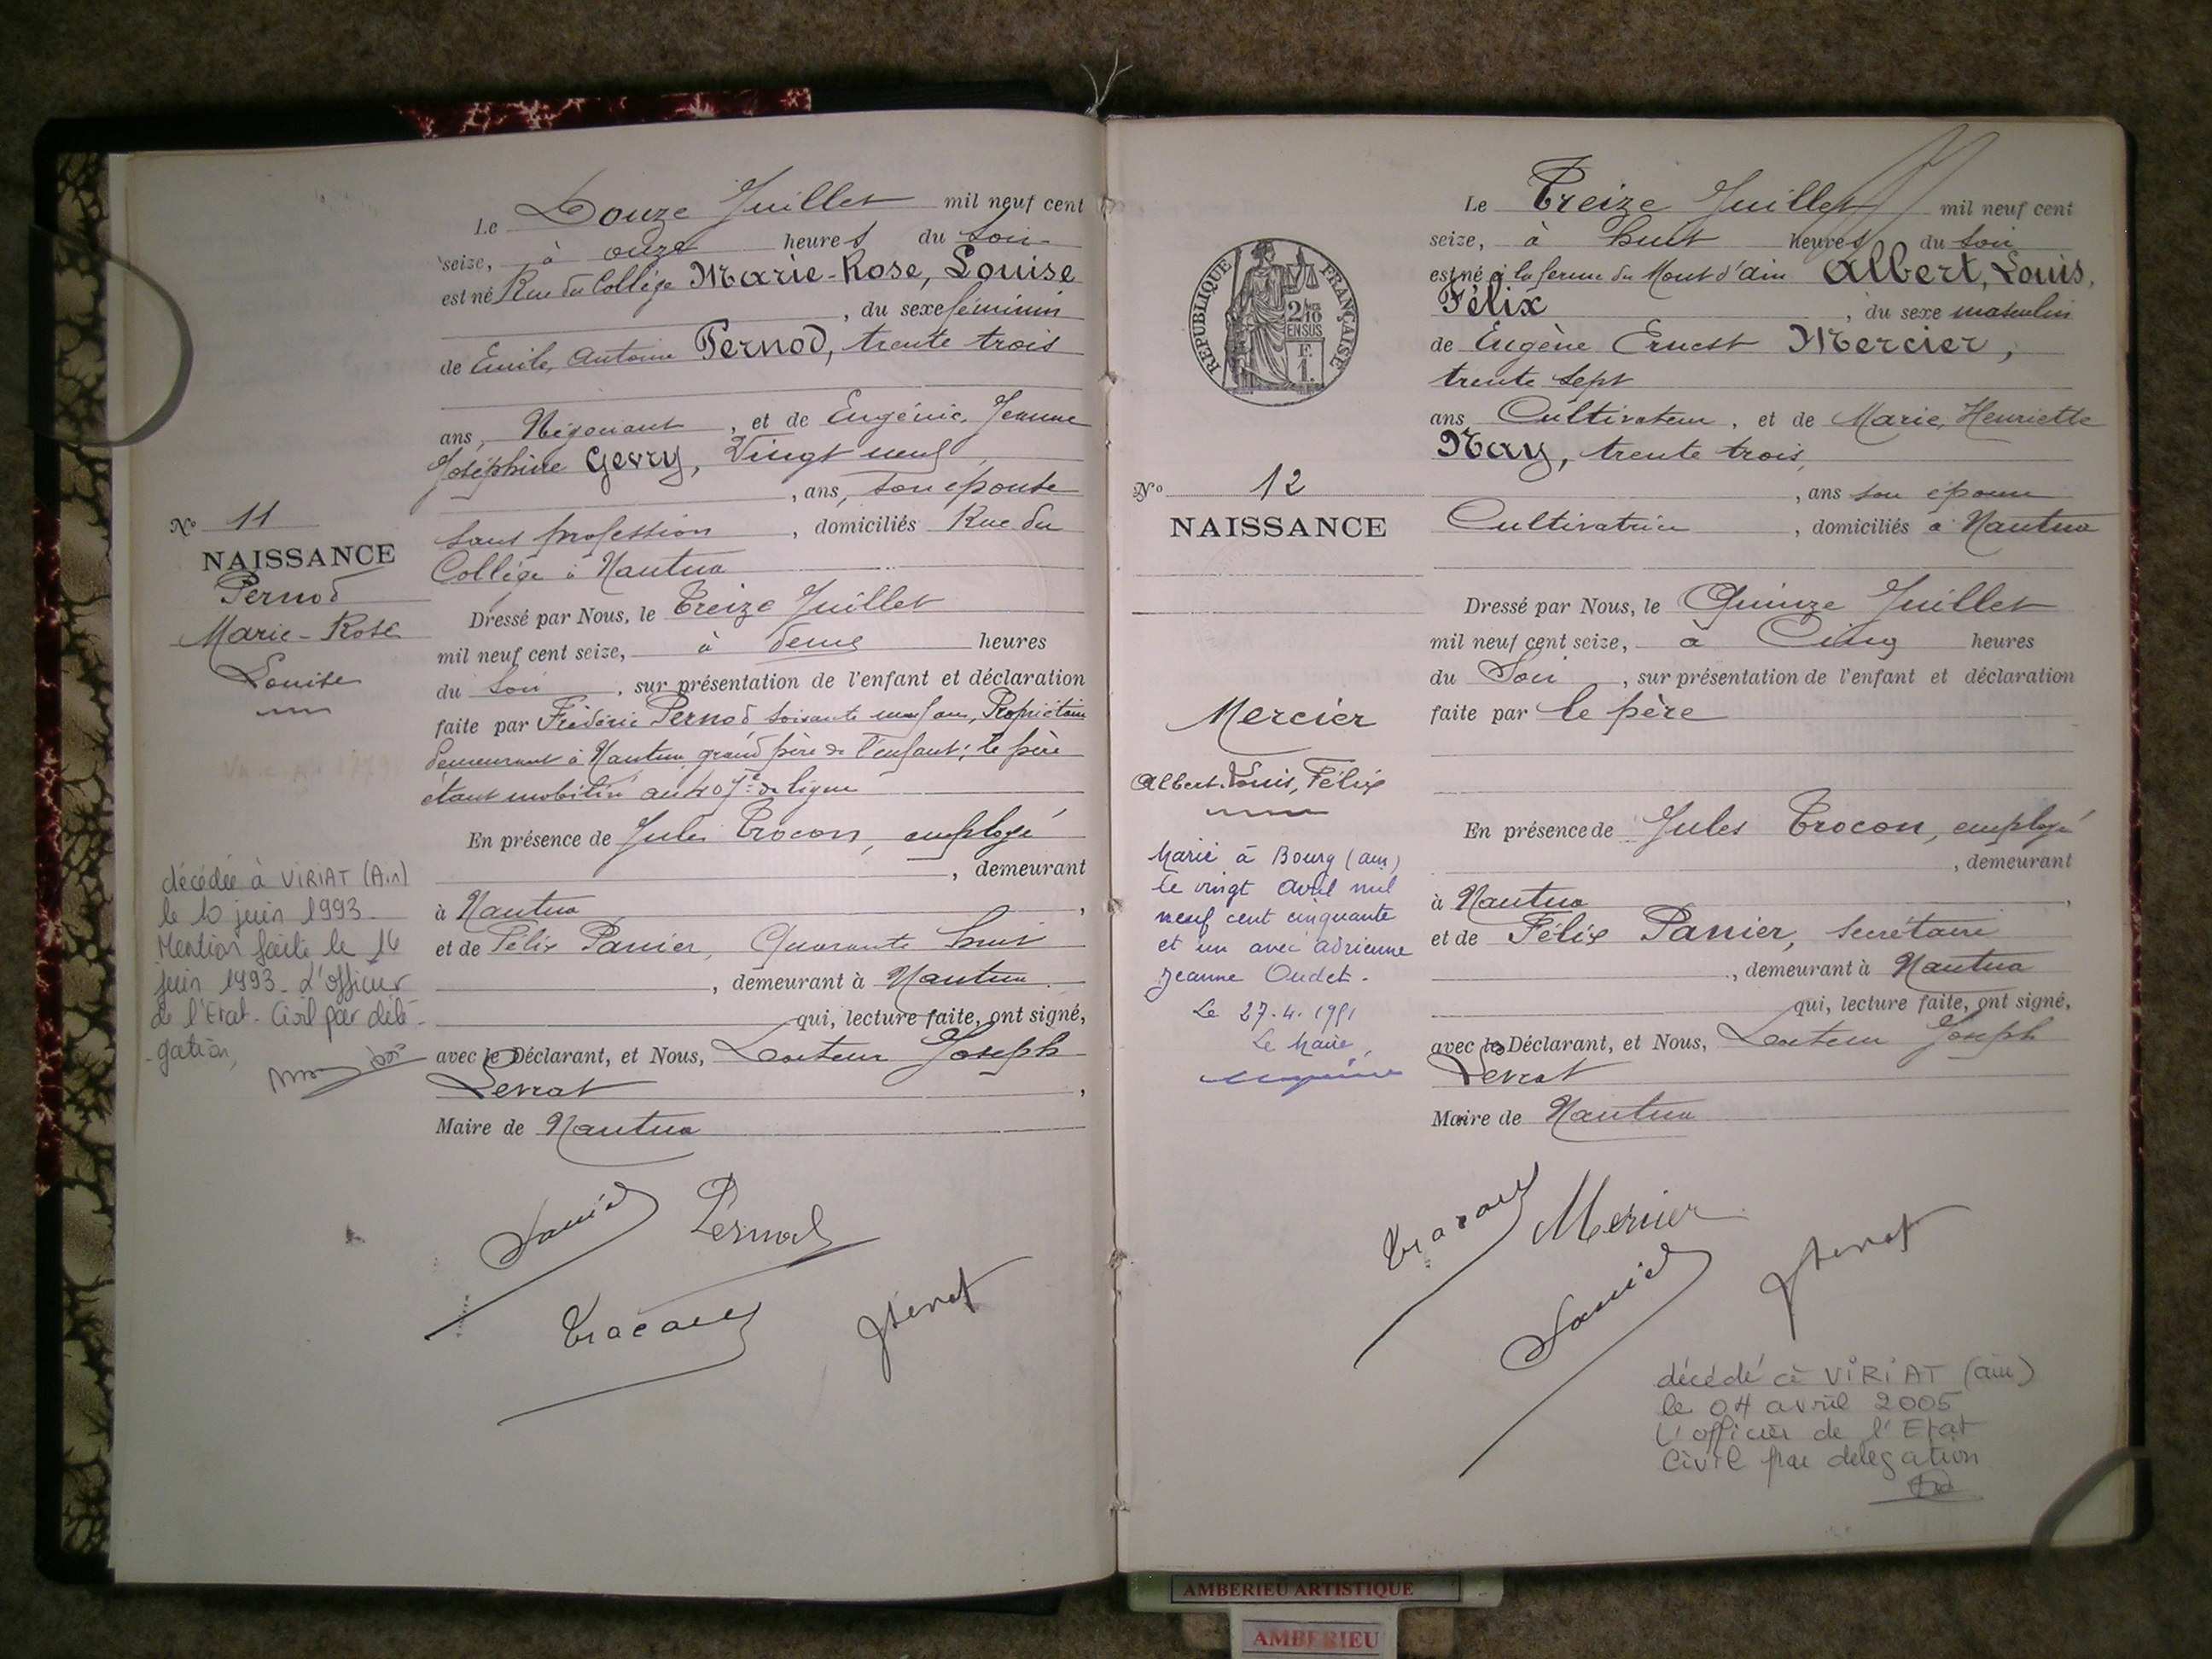 Le Douze Juillet mil neuf cent
seize, à onze heures du soir
est né Rue du Collège Marie-Rose, Louise
, du sexe féminin
de Emile, Antoine Pernod, trente trois
ans, Négociant, et de Eugénie, Jeanne
Joséphine Gevry, Vingt neuf
, ans, son épouse
sans profession, domiciliés Rue du
Collège à Nantua
Dressé par Nous, le Treize Juillet
mil neuf cent seize, à deux heures
du soir, sur présentation de l'enfant et déclaration
faite par Frédéric Pernod soixante neuf ans, Propriétaire
demeurant à Nantua, grand père de l'enfant; le père
étant mobilisé au 407e de ligne
En présence de Jules Trocon, employé
, demeurant
à Nantua,
et de Félix Panier, Quarante huit
, demeurant à Nantua
qui, lecture faite, ont signé,
avec le Déclarant, et Nous, Docteur Joseph
Levrat,
Maire de Nantua
Nº 11
NAISSANCE
Pernod
Marie-Rose
Louise
décédée à VIRIAT (Ain)
le 10 juin 1993.
Mention faite le 16
juin 1993. L'officier
de l'Etat-Civil par délé-
gation,
Panier Pernod
Trocon JLevrat
REPUBLIQUE FRANÇAISE
2/10
EN SUS
F.
1.
Le Treize Juillet mil neuf cent
seize, à huit heures du soir
est né à la ferme du Mont d'ain Albert, Louis,
Félix, du sexe masculin
de Eugène Ernest Mercier,
trente sept
ans Cultivateur, et de Marie, Henriette
Nay, trente trois,
, ans son épouse
Cultivatrice, domiciliés à Nantua
Dressé par Nous, le Quinze Juillet
mil neuf cent seize, à Cinq heures
du Soir, sur présentation de l'enfant et déclaration
faite par le père
En présence de Jules Trocon, employé
, demeurant
à Nantua,
et de Félix Panier, secrétaire
, demeurant à Nantua
qui, lecture faite, ont signé,
avec le Déclarant, et Nous, Docteur Joseph
Levrat
Maire de Nantua
Nº 12
NAISSANCE
Mercier
Albert, Louis, Félix
Marié à Bourg (ain)
le vingt avril mil
neuf cent cinquante
et un avec Adrienne
Jeanne Oudet.
Le 27.4.1951
Le Maire,
Trocon Mercier
Panier JLevrat
décédé à VIRIAT (ain)
le 04 avril 2005
L'officier de l'Etat
Civil par délégation
AMBERIEU ARTISTIQUE
AMBERIEU